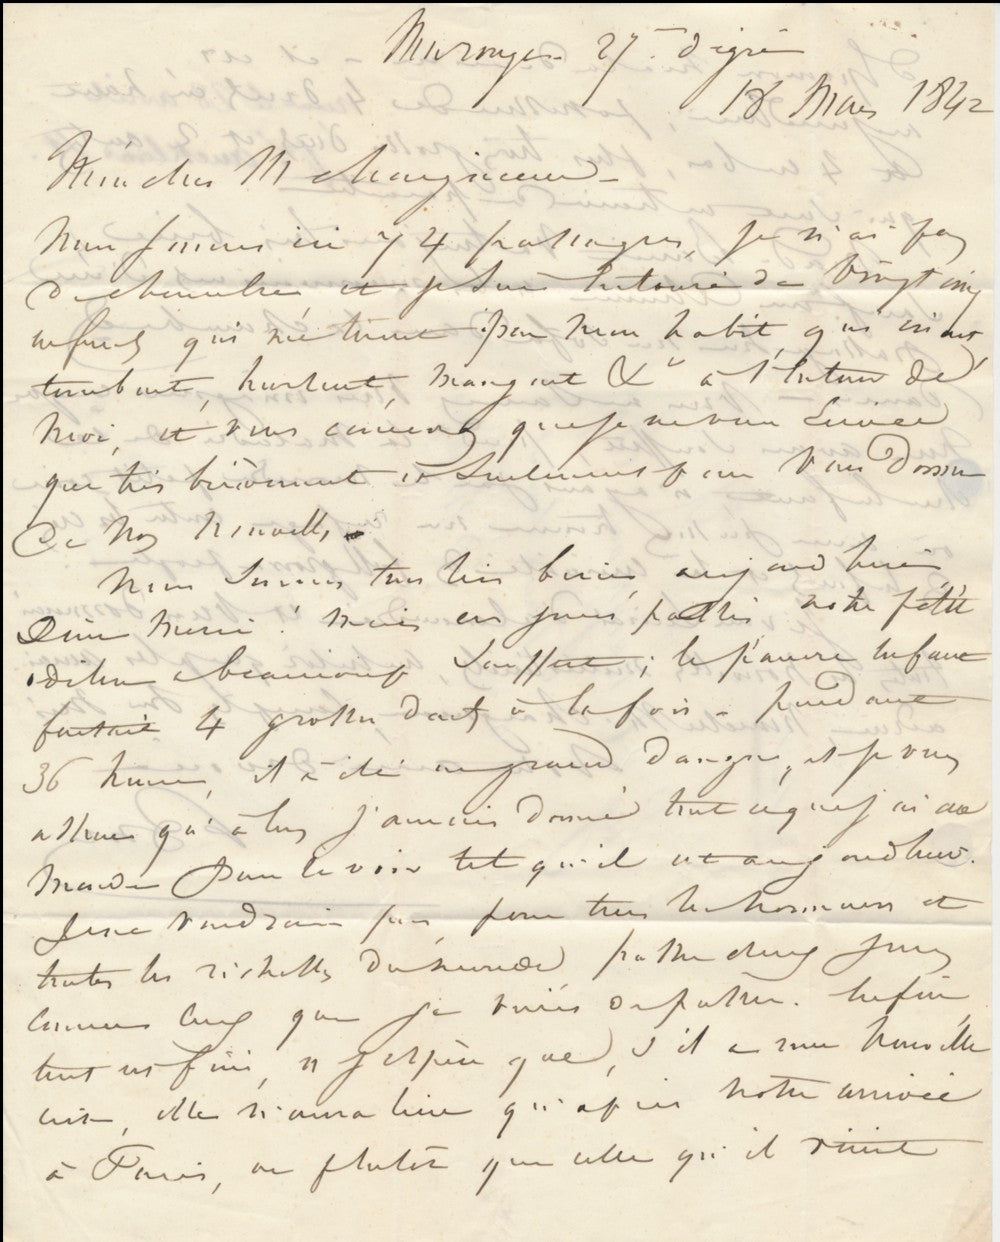 27. degré
18 Mars 1842
Mon cher M
Nous sommes ici 74 passagers, je n'ai pas
de chambre et je suis entouré de vingt cinq
enfants qui me tirent par mon habit, qui crient,
tombent, hurlent, mangent &a à l'entour de
moi, et vous concevez que je ne vous écrive
que très brièvement et seulement pour vous donner
de nos nouvelles.
Nous sommes tous très bien aujourd'hui
Dieu merci! mais ces jours passés notre petit
a beaucoup souffert; le pauvre enfant
faisait 4 grosses dents à la fois - pendant
36 heures, il a été en grand danger, et je vous
assure qu'alors j'aurais donné tout ce que j'ai au
monde pour le voir tel qu'il est aujourd'hui.
Je ne voudrais pas, pour tous les honneurs et
toutes les richesses du monde passer deux jours
comme ceux que je viens de passer. Enfin,
tout est fini, et j'espère que, s'il a une nouvelle
crise, elle n'aura lieu qu'après notre arrivée
à Paris, ou plutôt que celle qu'il vient